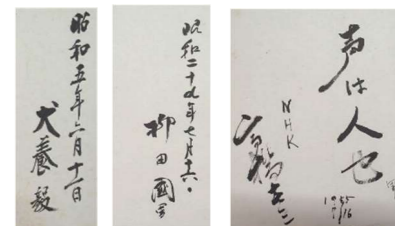 昭和五年六月十一日
犬養毅
昭和二十九年七月十六日
柳田國男
声は人也
NHK
高橋圭三
1955